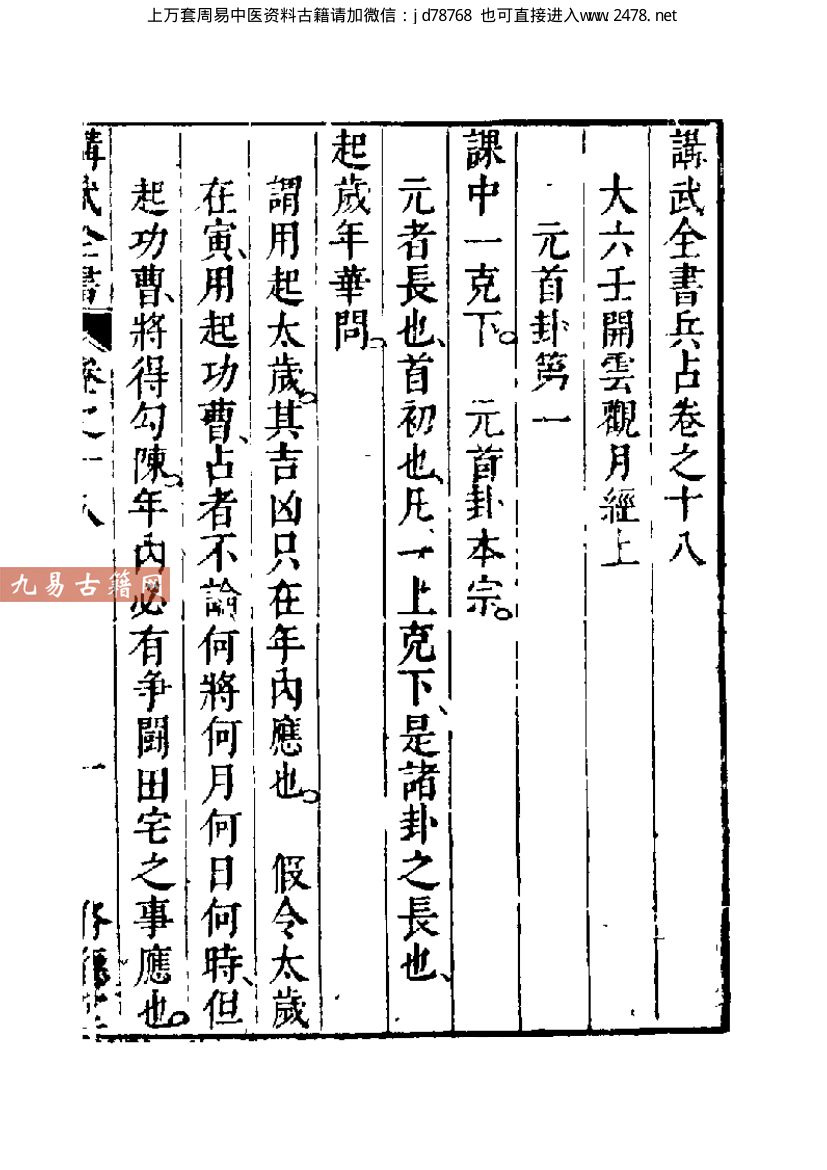 上万套周易中医资料古籍请加微信：jd78768 也可直接进入www.2478.net
講武全書兵占卷之十八
大六壬開雲觀月經上
元首卦第一
課中一克下。 元首卦本宗。
元者長也、首初也、凡一上克下、是諸卦之長也、
起歲年華問。
謂用起太歲。其吉凶只在年內應也。 假令太歲
在寅、用起功曹、占者不論何將何月何日何時、但
起功曹、將得勾陳。年內必有争鬪田宅之事應也。
講武全書 卷之十八 一
九易古籍网